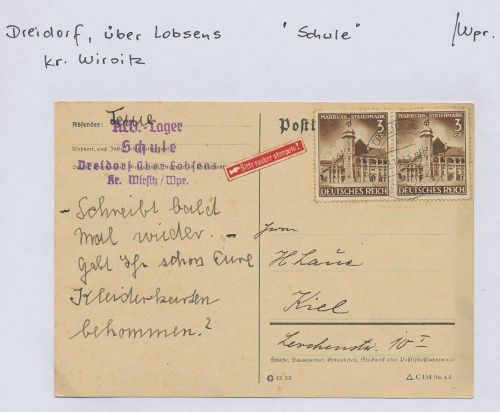 Dreidorf, über Lobsens "Schule" /Wpr.
Kr. Wirsitz
Absender:
KLV. Lager
Schule
Dreidorf über Lobsens
Kr. Wirsitz/Wpr.
Bitte sauber stempeln!
MARBURG STEIERMARK
3
DEUTSCHES REICH
MARBURG STEIERMARK
3
DEUTSCHES REICH
- Schreibt bald
mal wieder. -
Habt Ihr schon Eure
Kleiderkarten
bekommen?
Herrn
H Laue
Kiel
Lerchenstr. 10 I
Straße, Hausnummer, Gebäudeteil, Stockwerk oder Postschließfachnummer
C 154 Din A 6